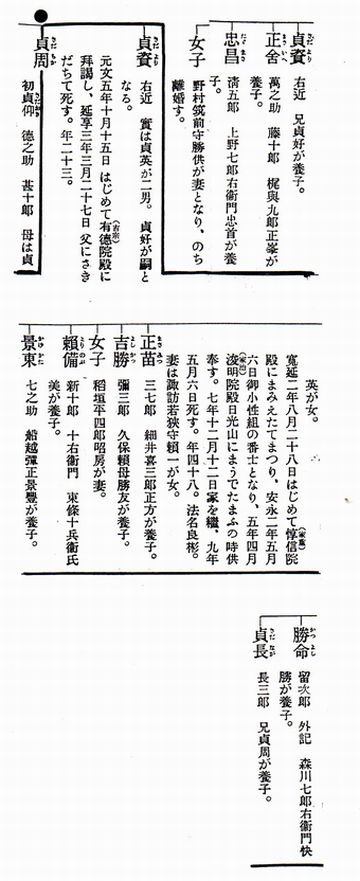 貞賚 さだより 右近 兄貞好が養子。
正舍 まさいへ 萬之助 藤十郎 梶與九郎正峯が
養子。
忠昌 たゞまさ 淸五郎 上野七郎右衞門忠首が養
子。
女子 野村筑前守勝供が妻となり、のち
離婚す。
貞賚 さだより 右近 實は貞英が二男。貞好が嗣と
なる。
元文五年十月十五日はじめて有德院殿に(吉宗)
拜謁し、延享三年三月二十七日父にさき
だちて死す。年二十三。
貞周 さだかね 初貞仰 德之助 甚十郎 母は貞
英が女。
寬延二年八月二十八日はじめて惇信院(家重)
殿にまみえたてまつり、安永二年五月
六日御小性組の番士となり、五年四月
浚明院殿日光山にまうでたまふの時供(家治)
奉す。七年十二月十二日家を繼、九年
五月六日死す。年四十八。法名良彬。
妻は諏訪若狹守賴一が女。
正苗 三七郎 細井喜三郎正方が養子。
吉勝 よしかつ 彌三郎 久保賴母勝友が養子。
女子 稻垣平四郎昭房が妻。
賴備 よりのぶ 新十郎 十右衞門 東條十兵衞氏
美が養子。
景東 かげ 七之助 船越彈正景豐が養子。
勝命 かつよし 留次郎 外記 森川七郎右衞門快
勝が養子。
貞長 さだなが 長三郎 兄貞周が養子。